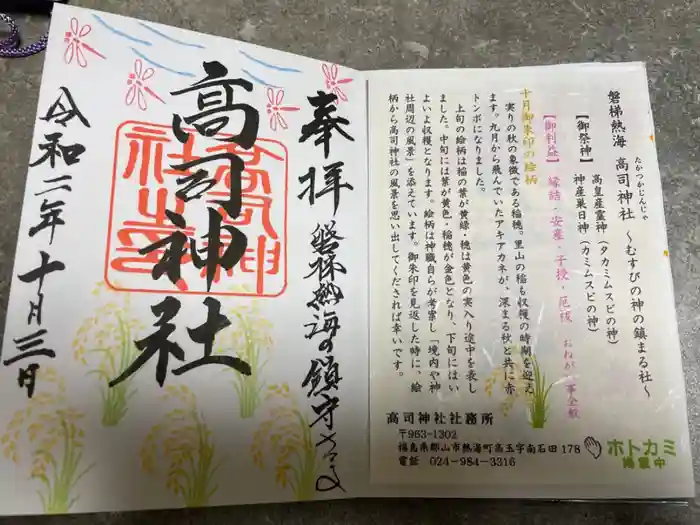 奉拝
磐梯熱海の鎮守さま
高司神社
高司神社之印
令和二年十月三日
磐梯熱海 高司神社 ～むすびの神の鎮まる社～
たかつかじんじゃ
【御祭神】 高皇産霊神（タカミムスビの神）
神産巣日神（カミムスビの神）
【御利益】 縁結・安産・子授・厄祓
十月御朱印の絵柄
実りの秋の象徴である稲穂。里山の稲も収穫の時期を迎え
ます。九月から飛んでいたアキアカネが、深まる秋と共に赤
トンボになりました。
上旬の絵柄は稲の葉が黄緑・穂は黄色の実入り途中を表し
ました。中旬には葉が黄色・稲穂が金色となり、下旬にはい
よいよ収穫となります。絵柄は神職自らが考案し「境内や神
社周辺の風景」を添えています。御朱印を見返した時に、絵
柄から高司神社の風景を思い出してくだされば幸いです。
高司神社社務所
〒963-1302
福島県郡山市熱海町高玉字南石田178
電話 024-984-3316
ホトカミ
掲載中